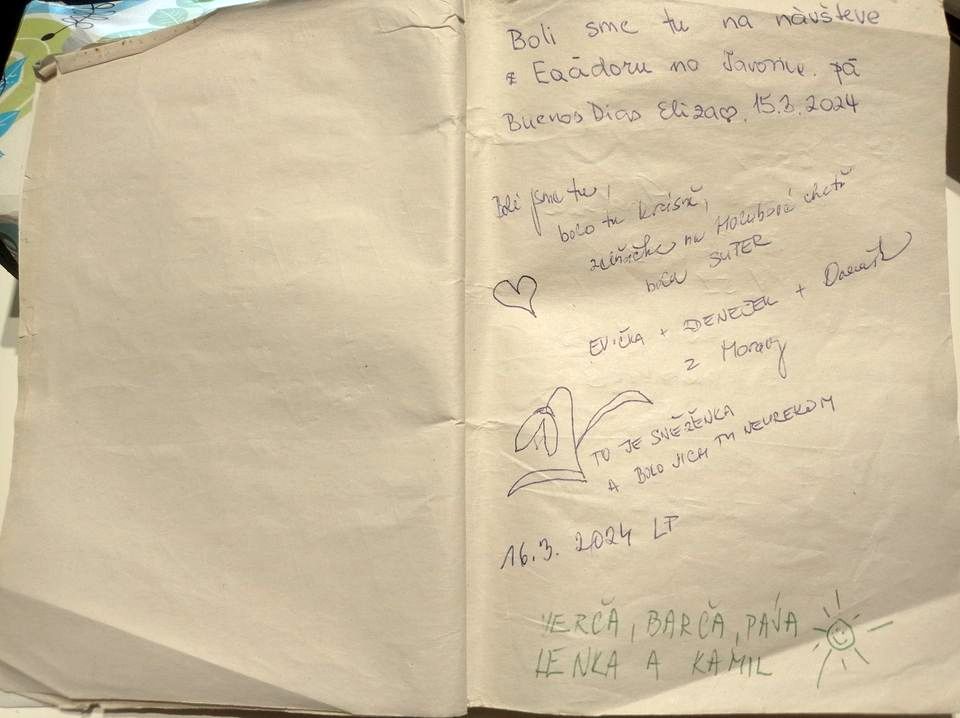 Boli sme tu na návšteve
z Eqádoru na Javorine. pá
Buenos Dias Eliza 15.3.2024
Boli jsme tu,
bolo tu krásně,
na Holubové chatě
bola SUTER
EVIČKA + ZDENEČEK +
z Moravy
TO JE SNĚŽENKA
A BOLO JICH TU NEUREKOM
16.3. 2024 LP
VERČA, BARČA, PÁJA
LENKA A KAMIL